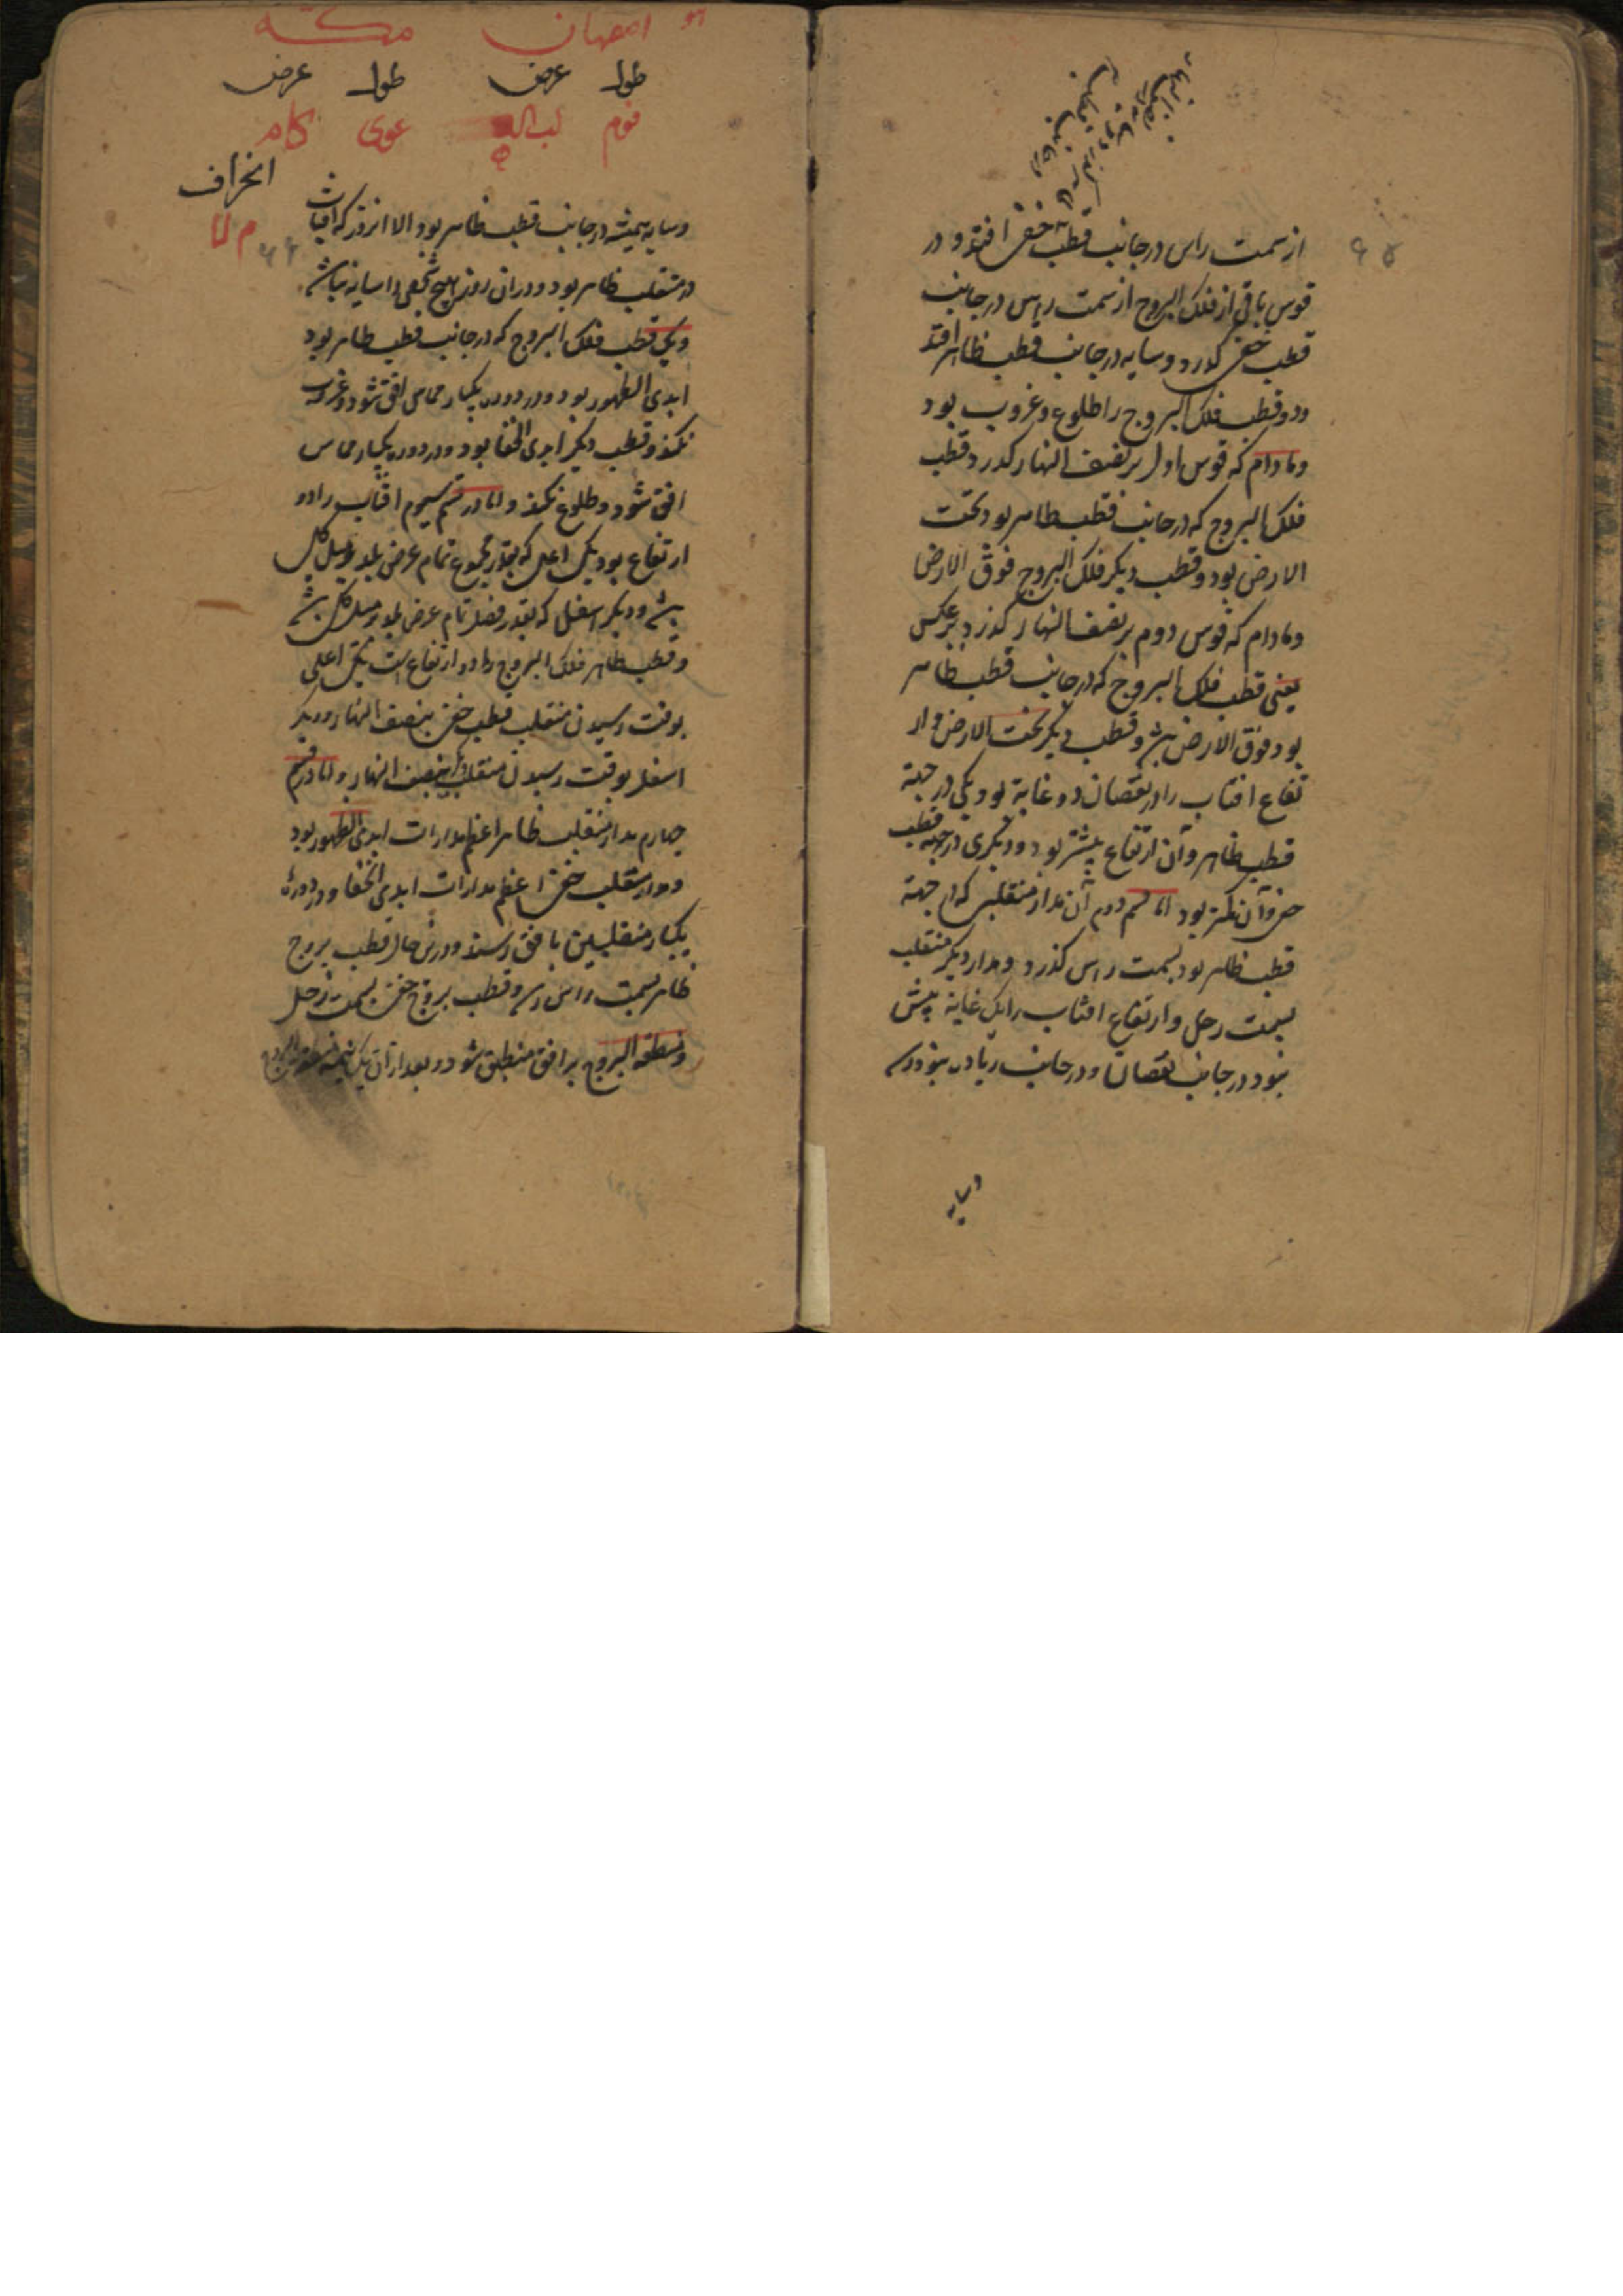 ۶۵
از سمت راس در جانب قطب خفی افتد و در
قوس باقی از فلک البروج از سمت راس در جانب
قطب خفی کذرد و سایه در جانب قطب ظاهر افتد
و دو قطب فلک البروج را طلوع و غروب بود
و مادام که قوس اول بر نصف النهار کذرد قطب
فلک البروج که در جانب قطب ظاهر بود تحت
الارض بود و قطب دیکر فلک البروج فوق الارض
و مادام که قوس دوم بر نصف النهار کذرد بر عکس
یعنی قطب فلک البروج که در جانب قطب ظاهر
بود فوق الارض باشد و قطب دیکر تحت الارض و ار
تفاع افتاب را در نقصان دو غایة بود یکی در جهة
قطب ظاهر و آن ارتفاع بیشتر بود و دیکری در جهة قطب
خفی و آن کمتر بود اما قسم دوم آن مدار منقلبی که در جهة
قطب ظاهر بود بسمت راس کذرد و مدار دیکر منقلب
بسمت رجل و ارتفاع افتاب را یک غایة بیش
نبود در جانب نقصان و در جانب زیاده نبود
وسایه
اصفهان مکه
طول عرض طول عرض
فوم لب عوی کام
انحراف
م لا
۶۶
وسایه همیشه در جانب قطب ظاهر بود الا انروز که افتاب
در منقلب ظاهر بود و در ان روز هیچ شخص را سایه نباشد
و یکی قطب فلک البروج که در جانب قطب ظاهر بود
ابدی الظهور بود و در دوره یکبار مماس افق شود و غروب
نکند و قطب دیکر ابدی الخفا بود و در دوره یکبار مماس
افق شود و طلوع نکند و اما در قسم سیوم افتاب را دو
ارتفاع بود یکی اعلی که بقدر مجموع تمام عرض بلد و میل کل
باشد و دیکر اسفل که بقدر فضل تمام عرض بلد بر میل کل باشد
و قطب ظاهر فلک البروج را دو ارتفاع است یکی اعلی
بوقت رسیدن منقلب قطب خفی بنصف النهار و دیکر
اسفل بوقت رسیدن منقلب دیکر بنصف النهار و اما در قسم
چهارم مدار منقلب ظاهر اعظم مدارات ابدی الظهور بود
و مدار منقلب خفی اعظم مدارات ابدی الخفا و در دوره
یکبار منقلبین بافق رسند و در این حال قطب بروج
ظاهر بسمت راس رسد و قطب بروج خفی بسمت رجل
و منطقه البروج بر افق منطبق شود و بعد از آن یک نیمه منطقه البروج